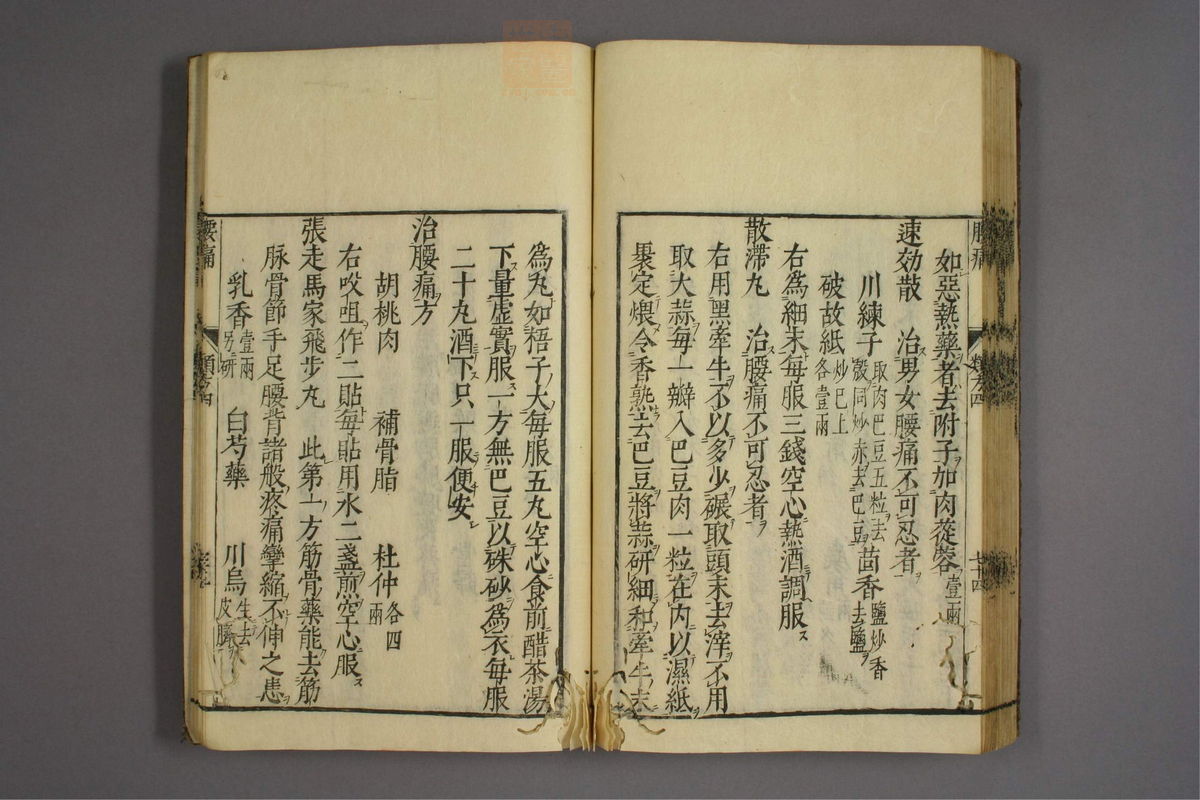 如惡熱藥者去附子加肉蓯蓉壹兩
速効散　治男女腰痛不可忍者
川練子取肉巴豆五粒去殼同炒赤去巴豆　茴香鹽炒香去鹽
破故紙炒巳上各壹兩
右為細末每服三錢空心熱酒調服
散滯丸　治腰痛不可忍者
右用黑牽牛不以多少碾取頭末去滓不用
取大蒜每一瓣入巴豆肉一粒在內以濕紙
裹定煨令香熟去巴豆將蒜研細和牽牛末
為丸如梧子大每服五丸空心食前醋茶湯
下量虛實服一方無巴豆以硃砂為衣每服
二十丸酒下只一服便安
治腰痛方
胡桃肉　補骨脂　杜仲各四兩
右㕮咀作二貼每貼用水二盞煎空心服
張走馬家飛步丸　此第一方筋骨藥能去筋
脉骨節手足腰背諸般疼痛攣縮不伸之患
乳香壹兩另研　白芍藥　川烏生去皮臍
腰痛